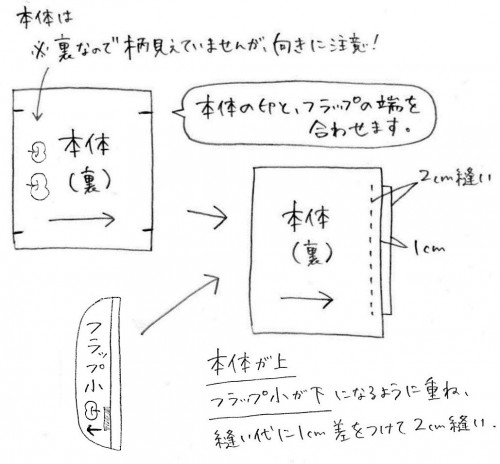 本体は
※裏なので柄見えていませんが、向きに注意!
本体の印と、フラップの端を
合わせます。
本体
(裏)
本体
(裏)
2cm縫い
1cm
フラップ小
本体が上
フラップ小が下になるように重ね、
縫い代に1cm差をつけて2cm縫い.